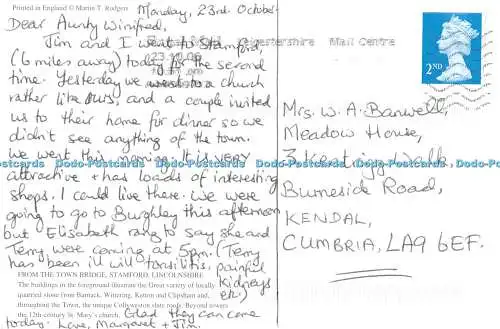 Printed in England © Martin T. Rodgers
Monday, 23rd October
Dear Aunty Winifred,
Jim and I went to Stamford,
(6 miles away) today for the second
time. Yesterday we went to a church
rather like ours, and a couple invited
us to their home for dinner so we
didn't see anything of the town.
We went this morning. It is very
attractive + has loads of interesting
shops. I could live there. We were
going to go to Burghley this afternoon
but Elisabeth rang to say she and
Terry were coming at 5pm. (Terry
has been ill with tonsilitis, painful
kidneys
etc.)
FROM THE TOWN BRIDGE, STAMFORD, LINCOLNSHIRE
The buildings in the foreground illustrate the Great variety of locally
quarried stone (from Barnack, Wittering, Ketton and Clipsham and,
throughout the Town, the unique Collyweston slate roofs. Beyond towers
the 12th-century St. Mary's church.
Glad they can come
today. Love, Margaret + Jim.
Leicestershire Mail Centre
23.10.06
2ND
Mrs. W. A. Banwell,
Meadow House,
3 Keating Walk,
Burneside Road,
KENDAL,
CUMBRIA, LA9 6EF.
Postcards Dodo-Postcards Dodo-Postcards Dodo-Postcards Dodo-Postcards Dodo-Postcards